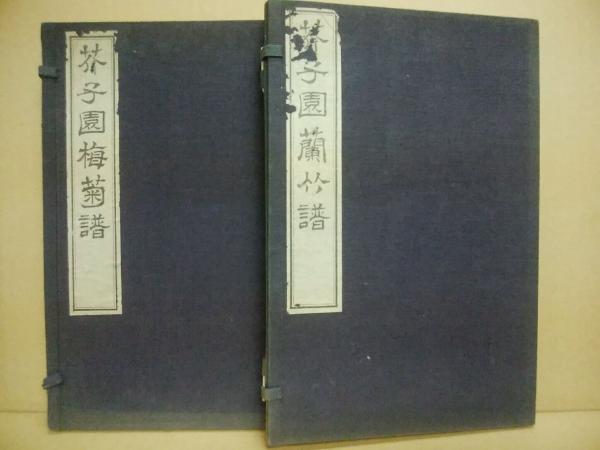 芥子園梅菊譜
芥子園蘭竹譜